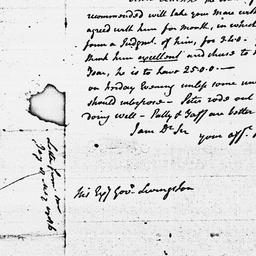 recommended will take your Mare with
agreed with him for Month, in which
form a Judgmt. of him, for I do
think him excellent and chuse to
Year, he is to have 25.0.0
on Friday Evening unless some un
should interpose – Peter rode out
doing well – Polly & Taff are better
I am Dr Sir
your affte.
His Exy Govr. Livingston
Letter from Mr
Jay